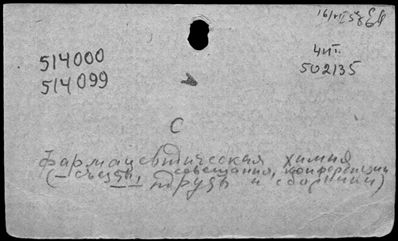 16/VII 58
514000
чит.
514099
502135
С
Фармацевтическая химия
(— съезды, совещания, конференции
труды и сборники)